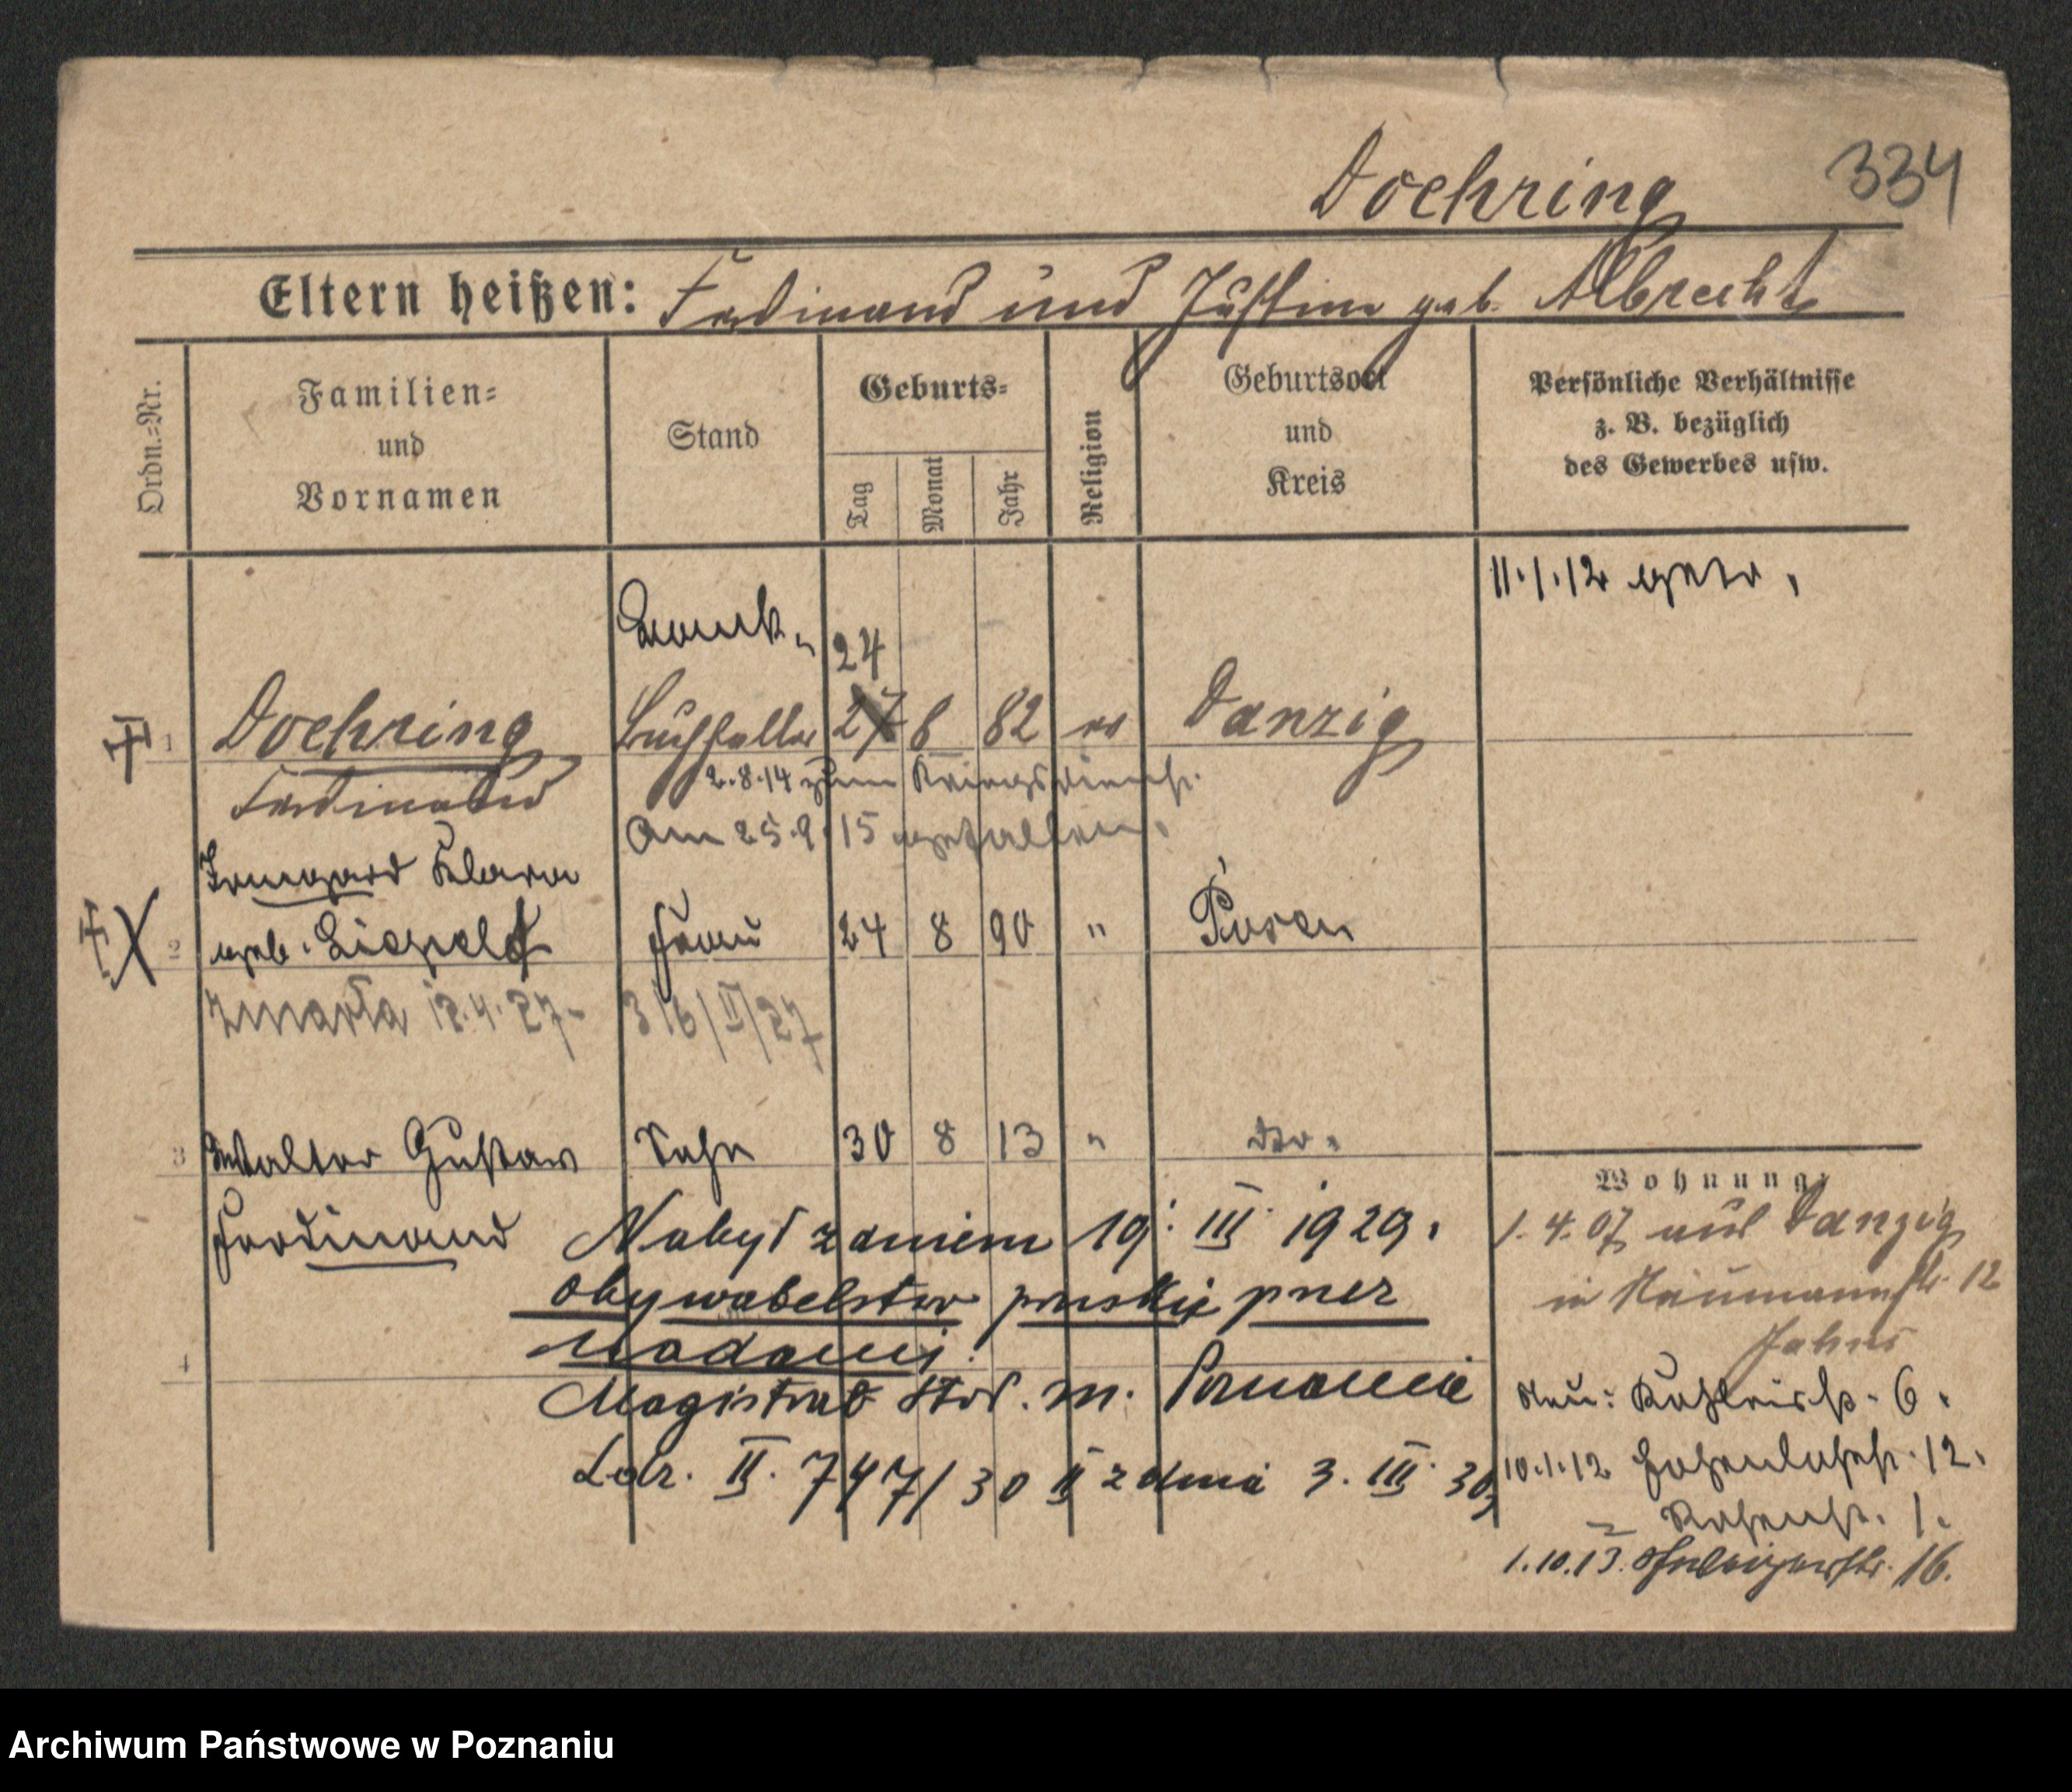 334
Doehring
Eltern heißen: Ferdinand und Justine geb. Albrecht
Ordn.=Nr.
Familien=
und
Vornamen
Stand
Geburts=
Tag
Monat
Jahr
Religion
Geburtsort
und
Kreis
Persönliche Verhältnisse
z. B. bezüglich
des Gewerbes usw.
11.1.12 getr.
24
1 Doehring Buchhalter 27 6 82 ev Danzig
Ferdinand
2.8.14 zum Kriegsdienst.
Am 25.9.15 gefallen.
Irmgard Klara
2 geb. Liepelt Frau 24 8 90 " Posen
zmarła 12.4.27- 316/II/27
3 Walter Gustav Sohn 30 8 13 " dto.
Ferdinand
Nabył z dniem 19. III. 1929.
obywatelstwo pruskie przez
nadanie.
4
Magistrat stoł. m. Poznania
Ldz. II. 747/30 II z dnia 3. III. 30,
Wohnung:
1.4.07 aus Danzig
in Naumannstr. 12
Neu: 6.
10.1.12 Hohenlohestr. 12.
Rosenstr. 1.
1.10.13. 16.
Archiwum Państwowe w Poznaniu